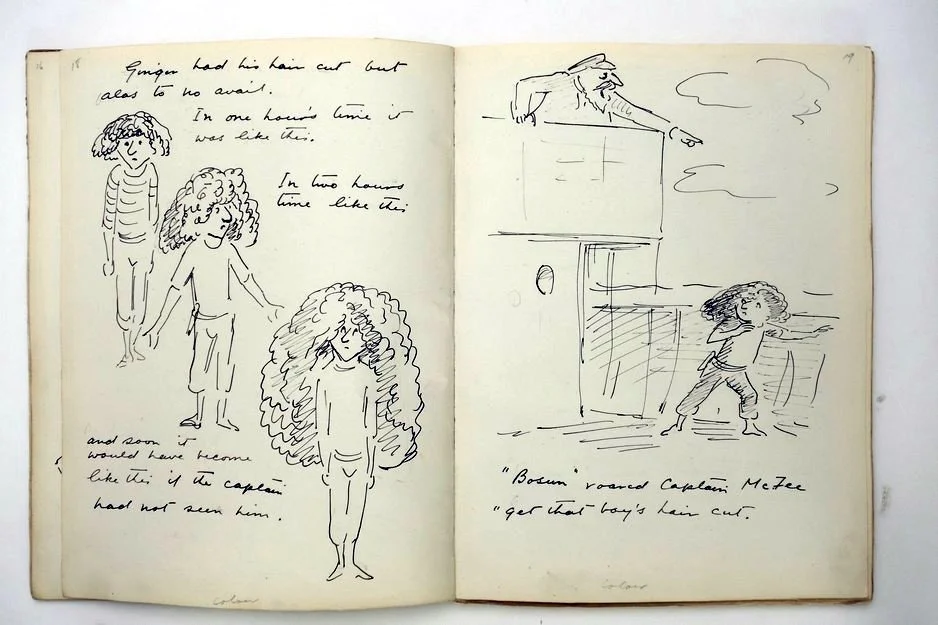 16
18
Ginger had his hair cut but
alas to no avail.
In one hour's time it
was like this.
In two hours
time like this
and soon it
would have become
like this if the captain
had not seen him.
colour
19
"Bosun" roared Captain McFee
"get that boy's hair cut.
colour